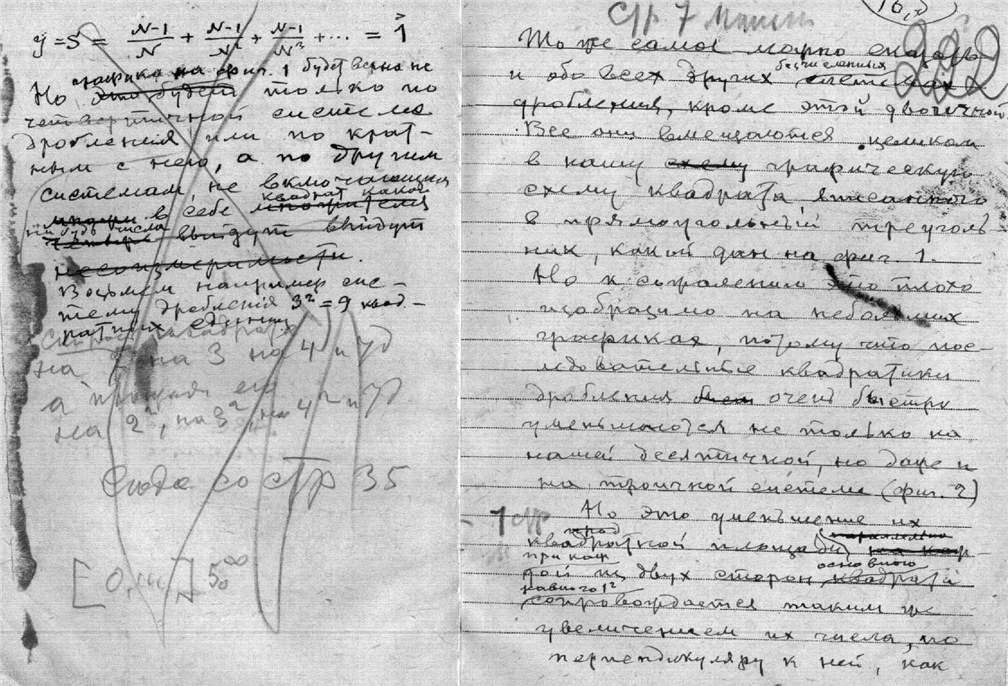 y = S = N-1/N + N-1/N² + N-1/N³ + ... = 1
графика на фиг. 1 будет верна не
Но это будет только по
четверичной системе
дробления или по крат-
ным с нею, а по другим
системам, не включающим
квадрат какой
в себе множителя
нибудь числа
четыре выйдут выйдут
несоизмеримости.
Возьмем например сис-
тему дробления 3² = 9 квад-
ратных единиц.
квадрата
на 2 на 3 на 4 и тд
а площади его
на 2², на 3², на 4² и тд
Сюда со стр 35
стр 7
То же самое можно сказать
бесчисленных
и обо всех других системах
дробления, кроме этой двоичной
Все они вмещаются целиком
в нашу схему графическую
схему квадрата вписанного
в прямоугольный треуголь-
ник, какой дан на фиг. 1.
Но к сожалению это плохо
изобразимо на небольших
графиках, потому что пос-
ледовательные квадратики
дробления очень быстро
уменьшаются не только на
нашей десятичной, но даже и
на троичной системе (фиг. 2)
Но это уменьшение их
квадратной площади
при каж
основного
дой из двух сторон квадрата
равного 1²
сопровождается таким же
увеличением их числа, по
перпендикуляру к ней, как